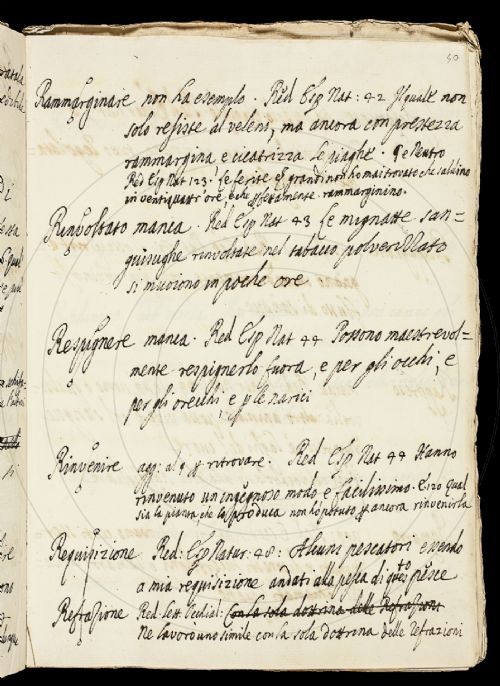 50
Rammarginare non ha esempio. Red Esp Nat: 42 Il quale non
solo resiste al veleno, ma ancora con prestezza
rammargina e cicatrizza le piaghe.
Red Esp Nat 123. le ferite
in ventiquattr'ore rammarginino.
Rinvoltato manca. Red Esp Nat 43 Le mignatte san=
guisughe rinvoltate nel tabacco polverizzato
si muoiono in poche ore
Respignere manca. Red Esp Nat 44 Possono maestrevol=
mente respignerlo fuora, e per gli occhi, e
per gli orecchi, e p le narici
Rinvenire agg: al § p ritrovare. Red Esp Nat 44 Hanno
rinvenuto un ingegnoso modo e facilissimo. E 120 qual
sia la pianta, che la produca non ho potuto p ancora rinvenirla
Requisizione. Red: Esp Natur: 48: Alcuni pescatori essendo
a mia requisizione andati alla pesca di questo pesce
Refrazione Red Lett. Occhial: Con la sola dottrina delle Refrazioni
Ne lavorò uno simile con la sola dottrina delle Refrazioni